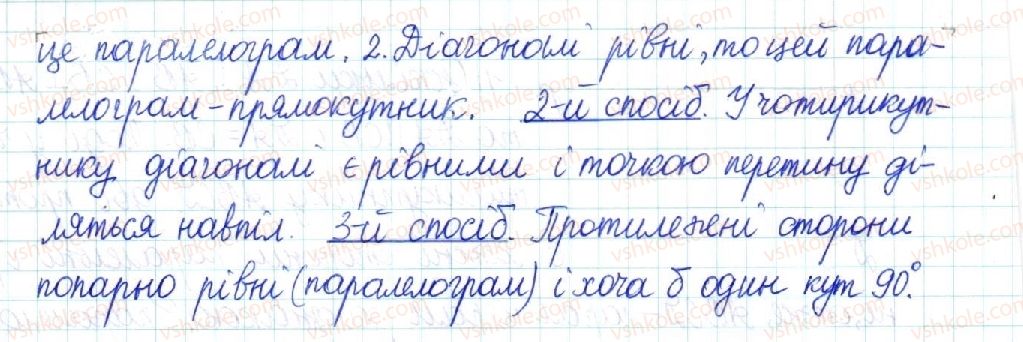 це паралелограм. 2. Діагоналі рівні, то цей пара-
лелограм - прямокутник. 2-й спосіб. У чотирикут-
нику діагоналі є рівними і точкою перетину ді-
ляться навпіл. 3-й спосіб. Протилежні сторони
попарно рівні (паралелограм) і хоча б один кут 90°.